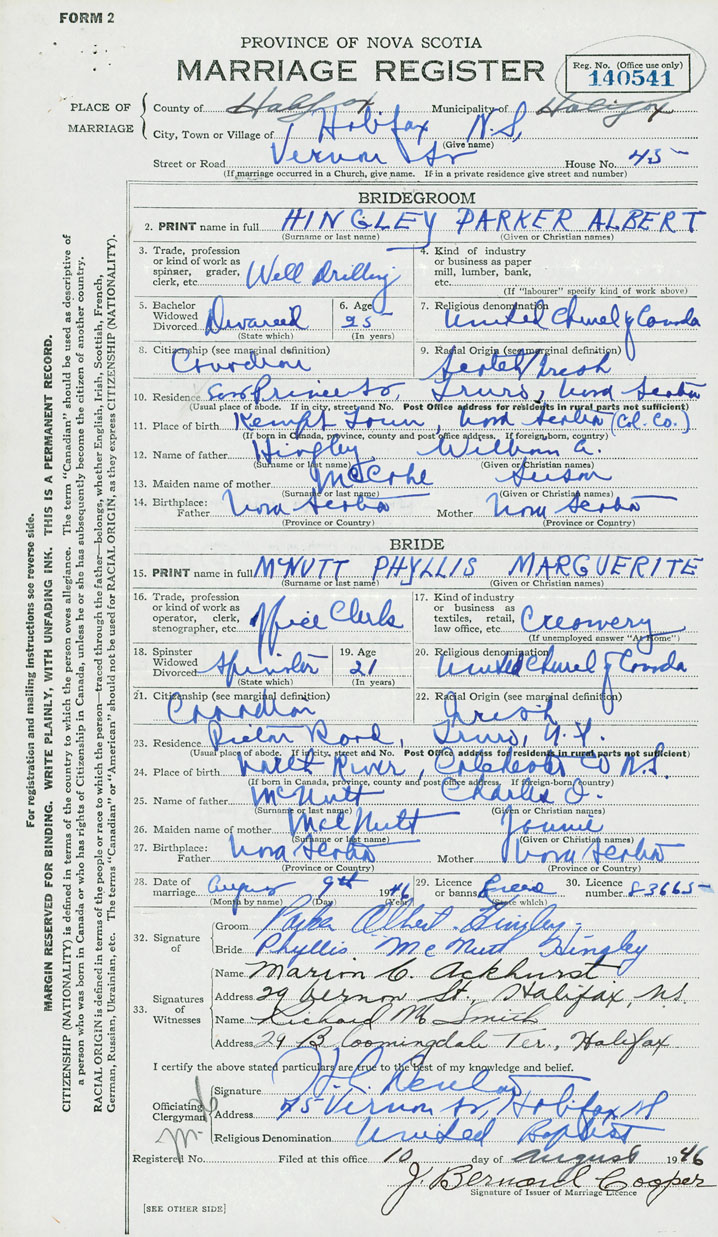 FORM 2
PROVINCE OF NOVA SCOTIA
MARRIAGE REGISTER
Reg. No. (Office use only)
140541
PLACE OF MARRIAGE
County of Halifax Municipality of Halifax
City, Town or Village of Halifax N.S.
(Give name)
Street or Road Vernon St House No. 45
(If marriage occurred in a Church, give name. If in a private residence give street and number)
BRIDEGROOM
2. PRINT name in full HINGLEY PARKER ALBERT
(Surname or last name) (Given or Christian names)
3. Trade, profession or kind of work as spinner, grader, clerk, etc. Well Drilling
4. Kind of industry or business as paper mill, lumber, bank, etc.
(If "labourer" specify kind of work above)
5. Bachelor Widowed Divorced Divorced
(State which)
6. Age 25
(In years)
7. Religious denomination United Church of Canada
8. Citizenship (see marginal definition) Canadian
9. Racial Origin (see marginal definition) Scotch/Irish
10. Residence Prince St, Truro, Nova Scotia
(Usual place of abode. If in city, street and No. Post Office address for residents in rural parts not sufficient)
11. Place of birth Kempt Town, Nova Scotia (Col. Co.)
(If born in Canada, province, county and post office address. If foreign born, country)
12. Name of father Hingley William A.
(Surname or last name) (Given or Christian names)
13. Maiden name of mother McCabe Susan
(Surname or last name) (Given or Christian names)
14. Birthplace: Father Nova Scotia Mother Nova Scotia
(Province or Country) (Province or Country)
BRIDE
15. PRINT name in full McNUTT PHYLLIS MARGUERITE
(Surname or last name) (Given or Christian names)
16. Trade, profession or kind of work as operator, clerk, stenographer, etc. Office Clerk
17. Kind of industry or business as textiles, retail, law office, etc. Creamery
(If unemployed answer "At Home")
18. Spinster Widowed Divorced Spinster
(State which)
19. Age 21
(In years)
20. Religious denomination United Church of Canada
21. Citizenship (see marginal definition) Canadian
22. Racial Origin (see marginal definition) Irish
23. Residence Pictou Road, Truro, N.S.
(Usual place of abode. If in city, street and No. Post Office address for residents in rural parts not sufficient)
24. Place of birth Salt River, Colchester Co N.S.
(If born in Canada, province, county and post office address. If foreign-born, country)
25. Name of father McNutt Charles
(Surname or last name) (Given or Christian names)
26. Maiden name of mother McNutt
(Surname or last name) (Given or Christian names)
27. Birthplace: Father Nova Scotia Mother Nova Scotia
(Province or Country) (Province or Country)
28. Date of marriage August 9th 1946
(Month by name) (Day) (Year)
29. Licence or banns
(State which)
30. Licence number 8-3665
32. Signature of
Groom Parker Albert Hingley
Bride Phyllis McNutt Hingley
33. Signatures of Witnesses
Name Marion C. Ackhurst
Address 29 Vernon St., Halifax, N.S.
Name Richard M Smith
Address 24 Bloomingdale Ter., Halifax
I certify the above stated particulars are true to the best of my knowledge and belief.
Officiating Clergyman
Signature
Address 45 Vernon St, Halifax NS
Religious Denomination United Baptist
Registered No. Filed at this office 10 day of August 1946
J. Bernard Cooper
Signature of Issuer of Marriage Licence
[SEE OTHER SIDE]
For registration and mailing instructions see reverse side.
MARGIN RESERVED FOR BINDING. WRITE PLAINLY, WITH UNFADING INK. THIS IS A PERMANENT RECORD.
CITIZENSHIP (NATIONALITY) is defined in terms of the country to which the person owes allegiance. The term "Canadian" should be used as descriptive of
a person who was born in Canada or who has rights of Citizenship in Canada, unless he or she has subsequently become the citizen of another country.
RACIAL ORIGIN is defined in terms of the people or race to which the person—traced through the father—belongs, whether English, Irish, Scottish, French,
German, Russian, Ukrainian, etc. The terms "Canadian" or "American" should not be used for RACIAL ORIGIN, as they express CITIZENSHIP (NATIONALITY).